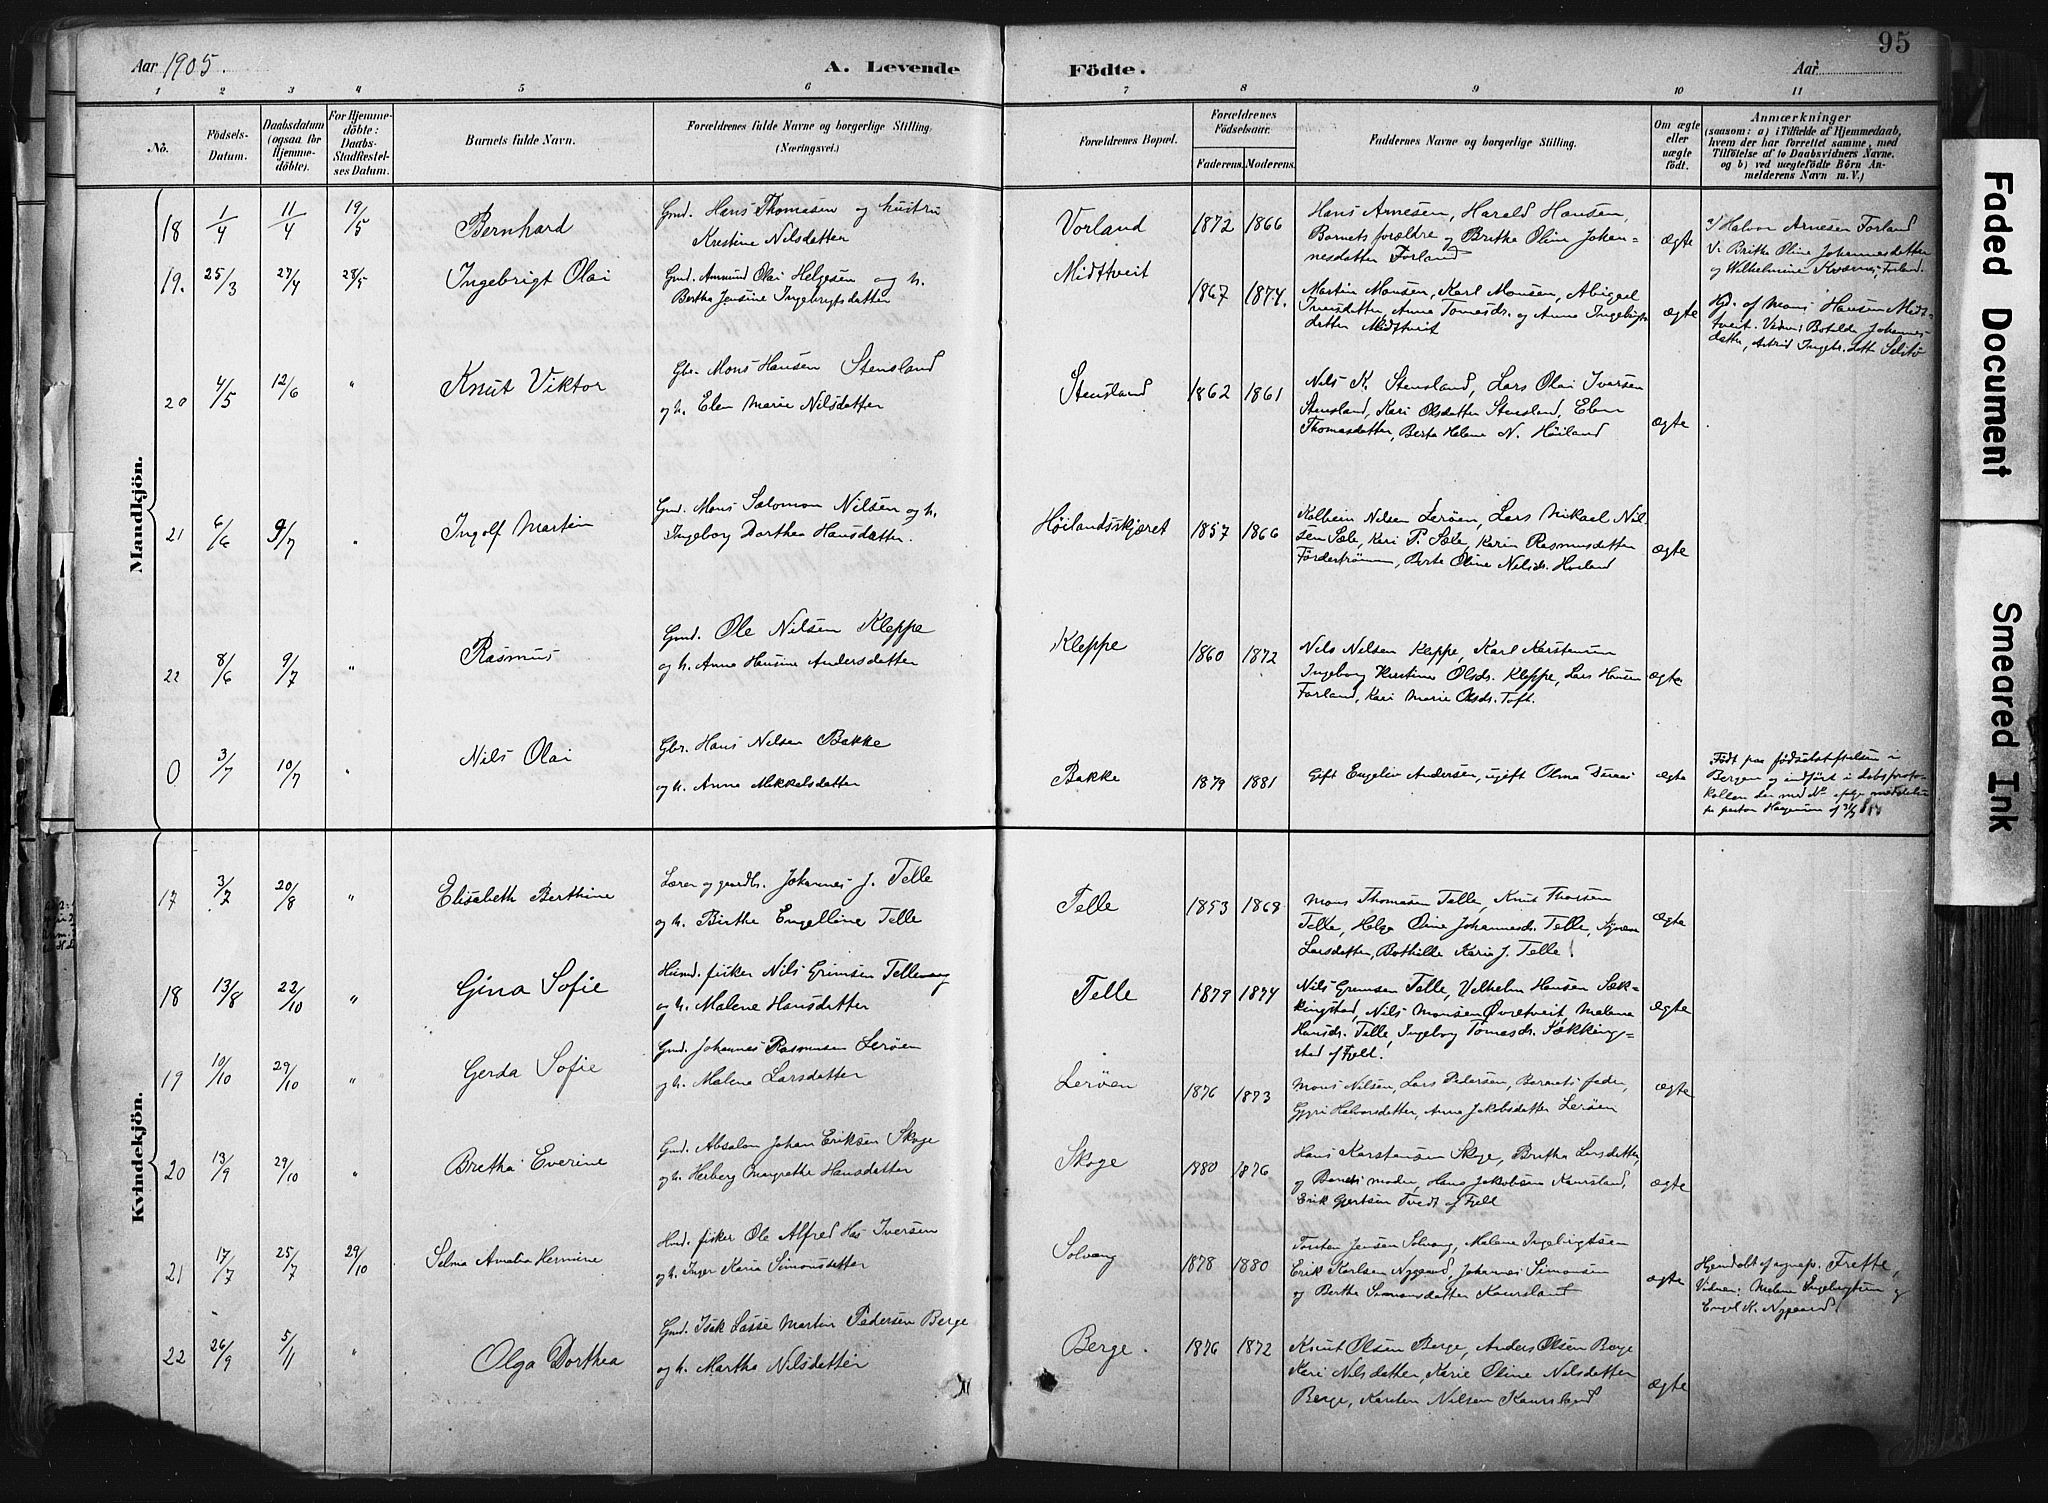 95
Aar 1905.
A. Levende Födte.
Aar
1 2 3 4 5 6 7 8 9 10 11
No.
Födsels-Datum.
Daabsdatum (ogsaa for Hjemmedöbte).
For Hjemmedöbte: Daabs-Stadfæstelses Datum.
Barnets fulde Navn.
Forældrenes fulde Navne og borgerlige Stilling.
(Næringsvei.)
Forældrenes Bopæl.
Forældrenes Födselsaar.
Faderens. Moderens.
Faddernes Navne og borgerlige Stilling.
Om ægte eller uægte födt.
Anmærkninger
(saasom: a) i Tilfælde af Hjemmedaab, hvem der har forrettet samme, med Tilföielse af to Daabsvidners Navne, og b) ved uægtefödte Börn Anmelderens Navn m. V.)
Mandkjön.
18 1/4 11/4 19/5 Bernhard
Gmd. Hans Thomasen og hustru
Kristine Nilsdatter
Vorland 1872 1866
Hans Arnesen, Harald Hansen,
Barnets forældre og Britha Oline Johan-
nesdatter Forland
ægte
Halvor Arnesen Forland
V: Britha Oline Johannesdatter
og Wilhelmine Forland.
19. 25/3 27/4 28/5 Ingebrigt Olai
Gmd. Ammund Olai Helgesen og h.
Bertha Jensine Ingebrigtsdatter
Midttveit 1867 1874.
Martin Monsen, Karl Monsen, Abigael
Iversdatter, Anna Tomesd. og Anna Ingebrigts-
datter Midtveit
ægte
Hjd. af Mons Hansen Midt-
tveit. Vidner: Botilde Johannes-
datter, Astrid Ingebr.datter
20 4/5 12/6 " Knut Viktor
Gbr. Mons Hansen Stensland
og h. Elen Marie Nilsdatter
Stensland 1862 1861
Nils K. Stensland, Lars Olai Iversen
Stensland, Kari Olsdatter Stensland, Elen
Thomasdatter, Berta Helene N. Höiland
ægte
21 6/6 9/7 " Ingolf Martin
Gmd. Mons Salomon Nilsen og h.
Ingeborg Dorthea Hansdatter.
Höilandsskjæret 1857 1866
Kolbein Nilsen Leröen, Lars Mikael Nil-
sen Sæle, Kari P. Sæle, Karin Rasmusdatter
Berte Oline Nilsd.
ægte
22 8/6 9/7 " Rasmus
Gmd. Ole Nilsen Kleppe
og h. Anna Hansine Andersdatter
Kleppe 1860 1872
Nils Nilsen Kleppe, Karl Karstensen
Ingeborg Kristine Olsd. Kleppe, Lars Hansen
Forland, Kari Marie Olsd. Toft.
ægte
0 3/7 10/7 " Nils Olai
Gbr. Hans Nilsen Bakke
og h. Anna Mikkelsdatter
Bakke 1879 1881
Gift Engeliv Andersen, ugift Olma
ægte
Födt paa födselsstiftelsen i
Bergen og indfört i daabsproto-
kollen der med No
Kvindekjön.
17 3/7 20/8 " Elisabeth Berthine
Lærer og gaardbr. Johannes J. Telle
og h. Birthe Engelline Telle
Telle 1853 1868
Mons Thomasen Telle, Knut
Telle, Helga Oline Johannesd. Telle,
Larsdatter, Bothilde Karie J. Telle
ægte
18 13/8 22/10 " Gina Sofie
Husmd. fisker Nils Grimsen Tellevaag
og h. Malene Hansdatter
Telle 1879 1874
Nils Grimsen Telle, Velhelm Hansen Sæk-
kingstad, Nils Monsen Övretveit, Malene
Hansd. Telle, Ingeborg Tomasd. Sækking-
stad af Fjeld.
ægte
19 10/10 29/10 " Gerda Sofie
Gmd. Johannes Rasmusen Leröen
og h. Malene Larsdatter
Leröen 1876 1873
Mons Nilsen, Lars Pedersen, Barnets fader,
Gyri Halvorsdatter, Anna Jakobsdatter Leröen
ægte
20 13/9 29/10 " Bretha Everine
Gmd. Absalon Johan Eriksen Skoge
og h. Herborg Margrethe Hansdatter
Skoge 1880 1876
Hans Karstensen Skoge, Britha Larsdatter,
og Barnets moder, Hans Jakobsen Kausland,
Erik Gjertsen Tvedt af Fjell
ægte
21 17/7 25/7 29/10 Selma Amalia Hermine
Husmd. fisker Ole Alfred Has Iversen
og h. Inger Karia Simonsdatter
Solvang 1878 1880
Torsten Jensen Solvang, Malene Ingebrigtsen
Erik Karlsen Nygaard, Johannes Simonsen
og Bertha Simonsdatter Kausland
ægte
Hjemdöbt af sognepr. Frette,
Vidner: Malene Ingebrigtsen og
Engel K. Nygaard
22 26/9 5/11 " Olga Dorthea
Gmd. Isak Lasse Martin Pedersen Berge
og h. Martha Nilsdatter
Berge. 1876 1872
Knut Olsen Berge, Anders Olsen Berge
Kari Nilsdatter, Karie Oline Nilsdatter
Berge, Karsten Nilsen Kausland
ægte
Faded Document
Smeared Ink